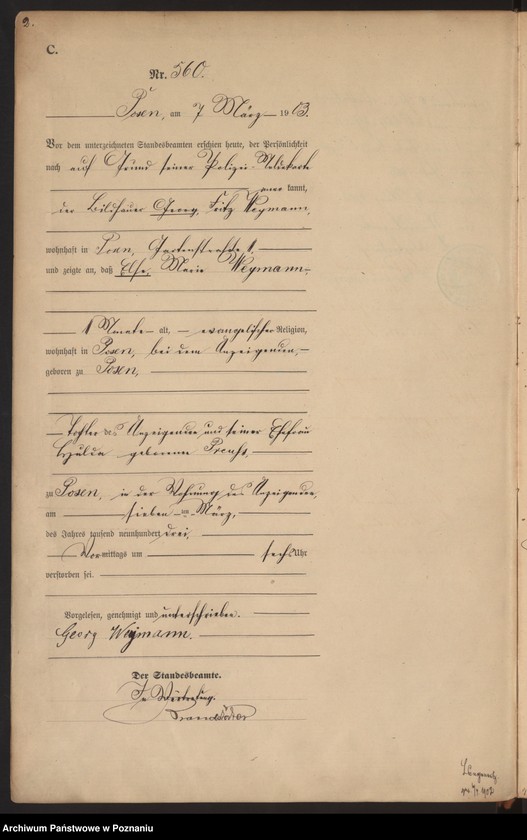 2.
C.
Nr. 560.
Posen, am 7 März 1903.
Vor dem unterzeichneten Standesbeamten erschien heute, der Persönlichkeit
nach auf Grund seiner Polizei-Meldekarte
anerkannt,
der Bildhauer Georg, Fritz Weymann,
wohnhaft in Posen, Gartenstraße 1.
und zeigte an, daß Else, Marie Weymann
1 Monate alt, evangelischer Religion,
wohnhaft in Posen, bei dem Anzeigenden,
geboren zu Posen,
Tochter des Anzeigenden und seiner Ehefrau
Hulda geborenen Preuß,
zu Posen, in der Wohnung des Anzeigenden,
am sieben ten März,
des Jahres tausend neunhundert drei,
Vormittags um sechs Uhr
verstorben sei.
Vorgelesen, genehmigt und unterschrieben.
Georg Weymann.
Der Standesbeamte.
In Vertretung.
Archiwum Państwowe w Poznaniu